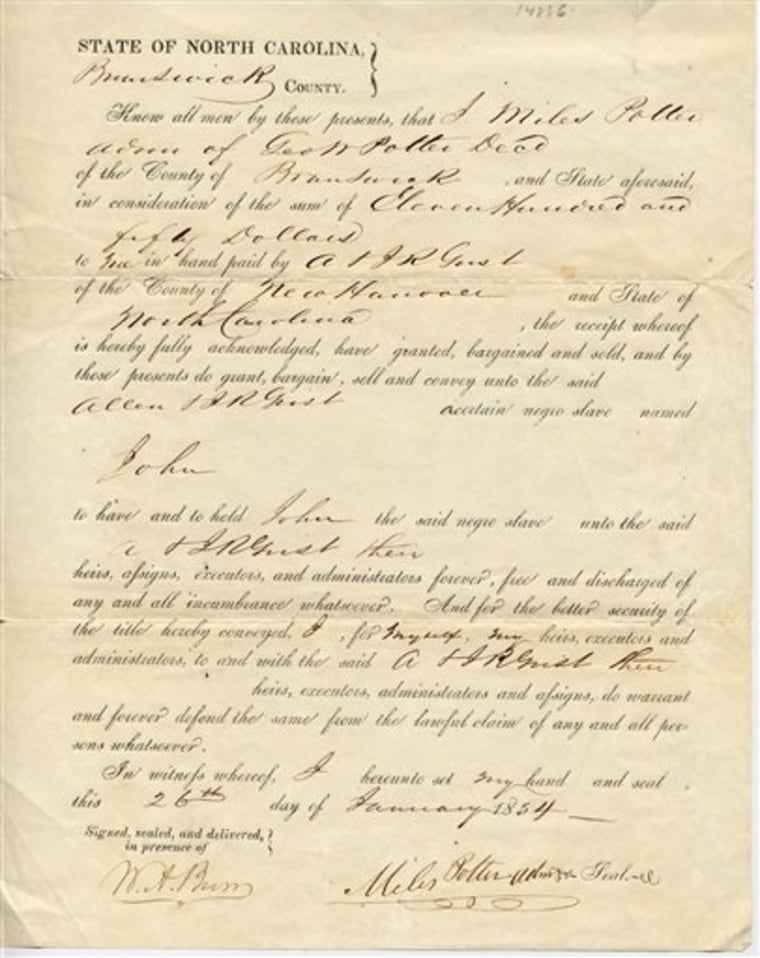 STATE OF NORTH CAROLINA,
Brunswick COUNTY.
Know all men by these presents, that I Miles Potter
admr of Geo W Potter Decd
of the County of Brunswick , and State aforesaid,
in consideration of the sum of Eleven Hundred and
fifty Dollars
to me in hand paid by A & J R Grist
of the County of New Hanover and State of
North Carolina , the receipt whereof
is hereby fully acknowledged, have granted, bargained and sold, and by
these presents do grant, bargain, sell and convey unto the said
Allen & J R Grist a certain negro slave named
John
to have and to hold John the said negro slave unto the said
A & J R Grist their
heirs, assigns, executors, and administrators forever, free and discharged of
any and all incumbrance whatsoever. And for the better security of
the title hereby conveyed, I , for myself, my heirs, executors and
administrators, to and with the said A & J R Grist their
heirs, executors, administrators and assigns, do warrant
and forever defend the same from the lawful claim of any and all per-
sons whatsoever.
In witness whereof, I hereunto set my hand and seal ,
this 26th day of January 1854
Signed, sealed, and delivered,
in presence of
W. A. Miles Potter admr Seal